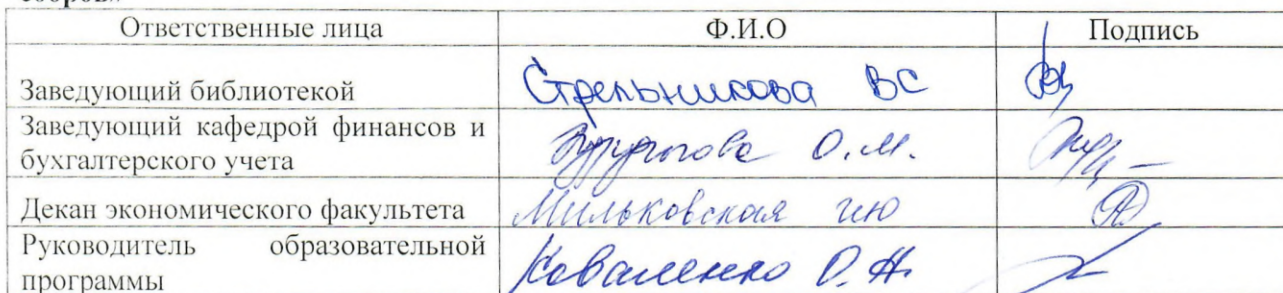 Ответственные лица Ф.И.О Подпись
Заведующий библиотекой Стрельникова ВС
Заведующий кафедрой финансов и
бухгалтерского учета О.М.
Декан экономического факультета Мильковская ИЮ
Руководитель образовательной
программы Коваленко О.Н.